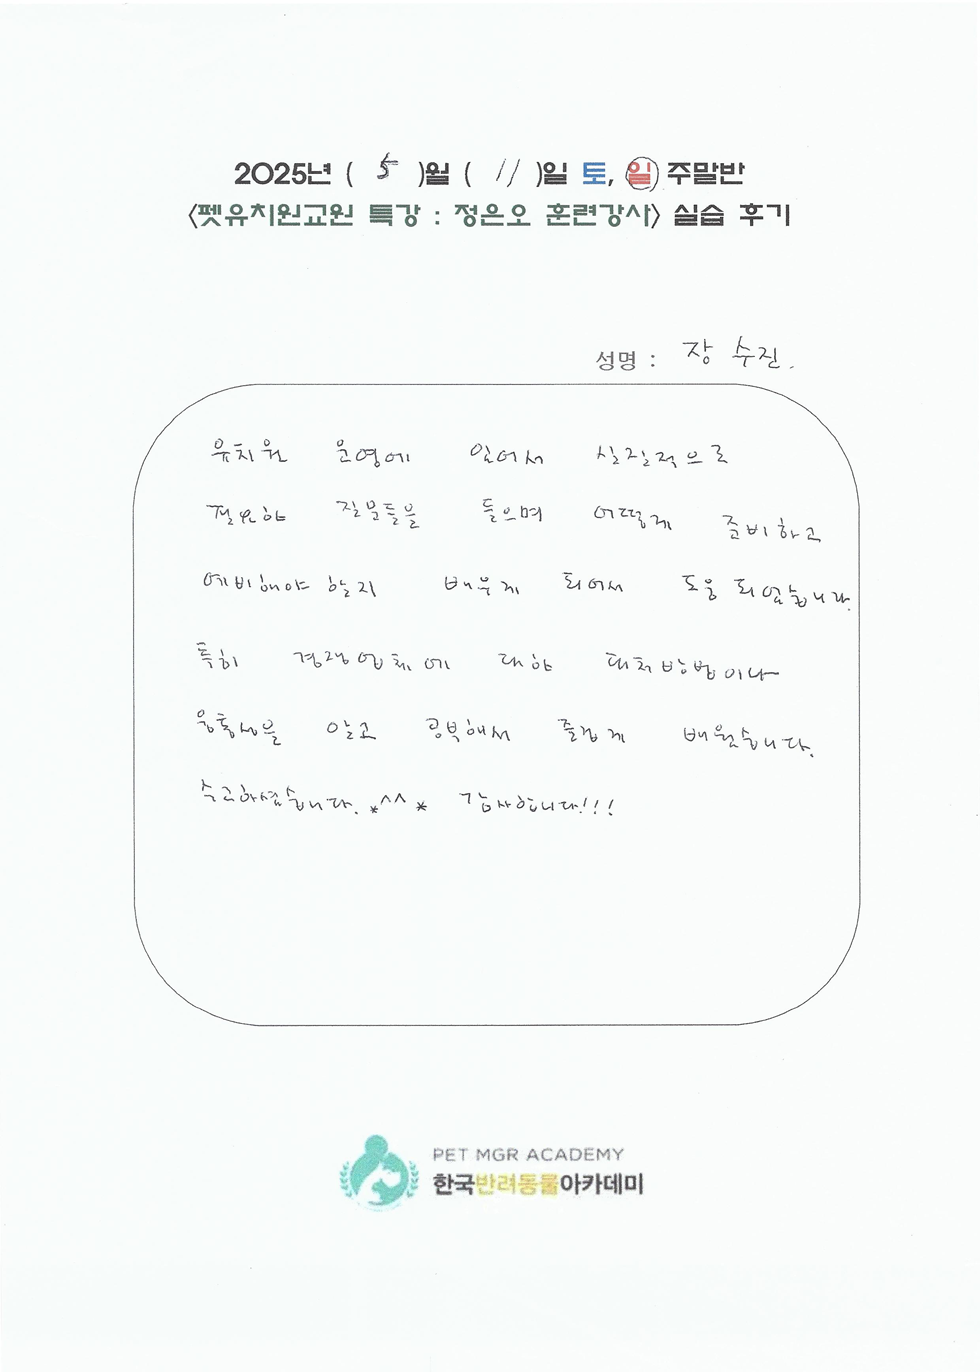 2025년 ( 5 )월 ( 11 )일 토, 일 주말반
<펫유치원교원 특강 : 정은오 훈련강사> 실습 후기
성명 : 장 수진.
유치원 운영에 있어서 실질적으로
필요한 질문들을 들으며 어떻게 준비하고
예비해야 할지 배우게 되어서 도움 되었습니다.
특히 경쟁업체에 대한 대처방법이나
융통성을 알고 공부해서 즐겁게 배웠습니다.
수고하셨습니다. *^^* 감사합니다!!!
PET MGR ACADEMY
한국반려동물아카데미